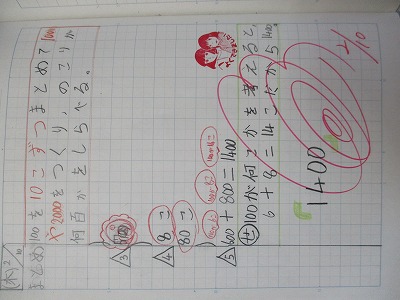 (水) 2/10
まとめ 100を10こずつまとめて1000
や2000をつくり、のこりが
何百かをしらべる。
3
4 8こ
80こ
100が6こ 100が8こ 100が14こ
5 600+800=1400
せ 100が何こかを考えると、
6+8=14こだから1400
1400
2/10